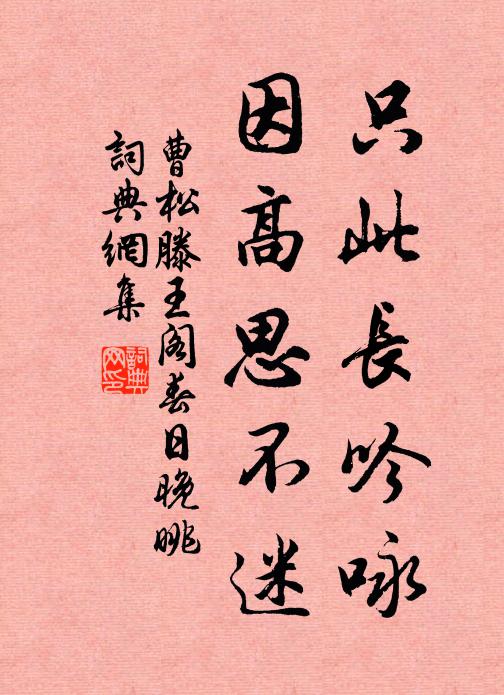 只此長吟咏
因高思不迷
曹松滕王阁春日晚眺
詞典網集
詞典网印